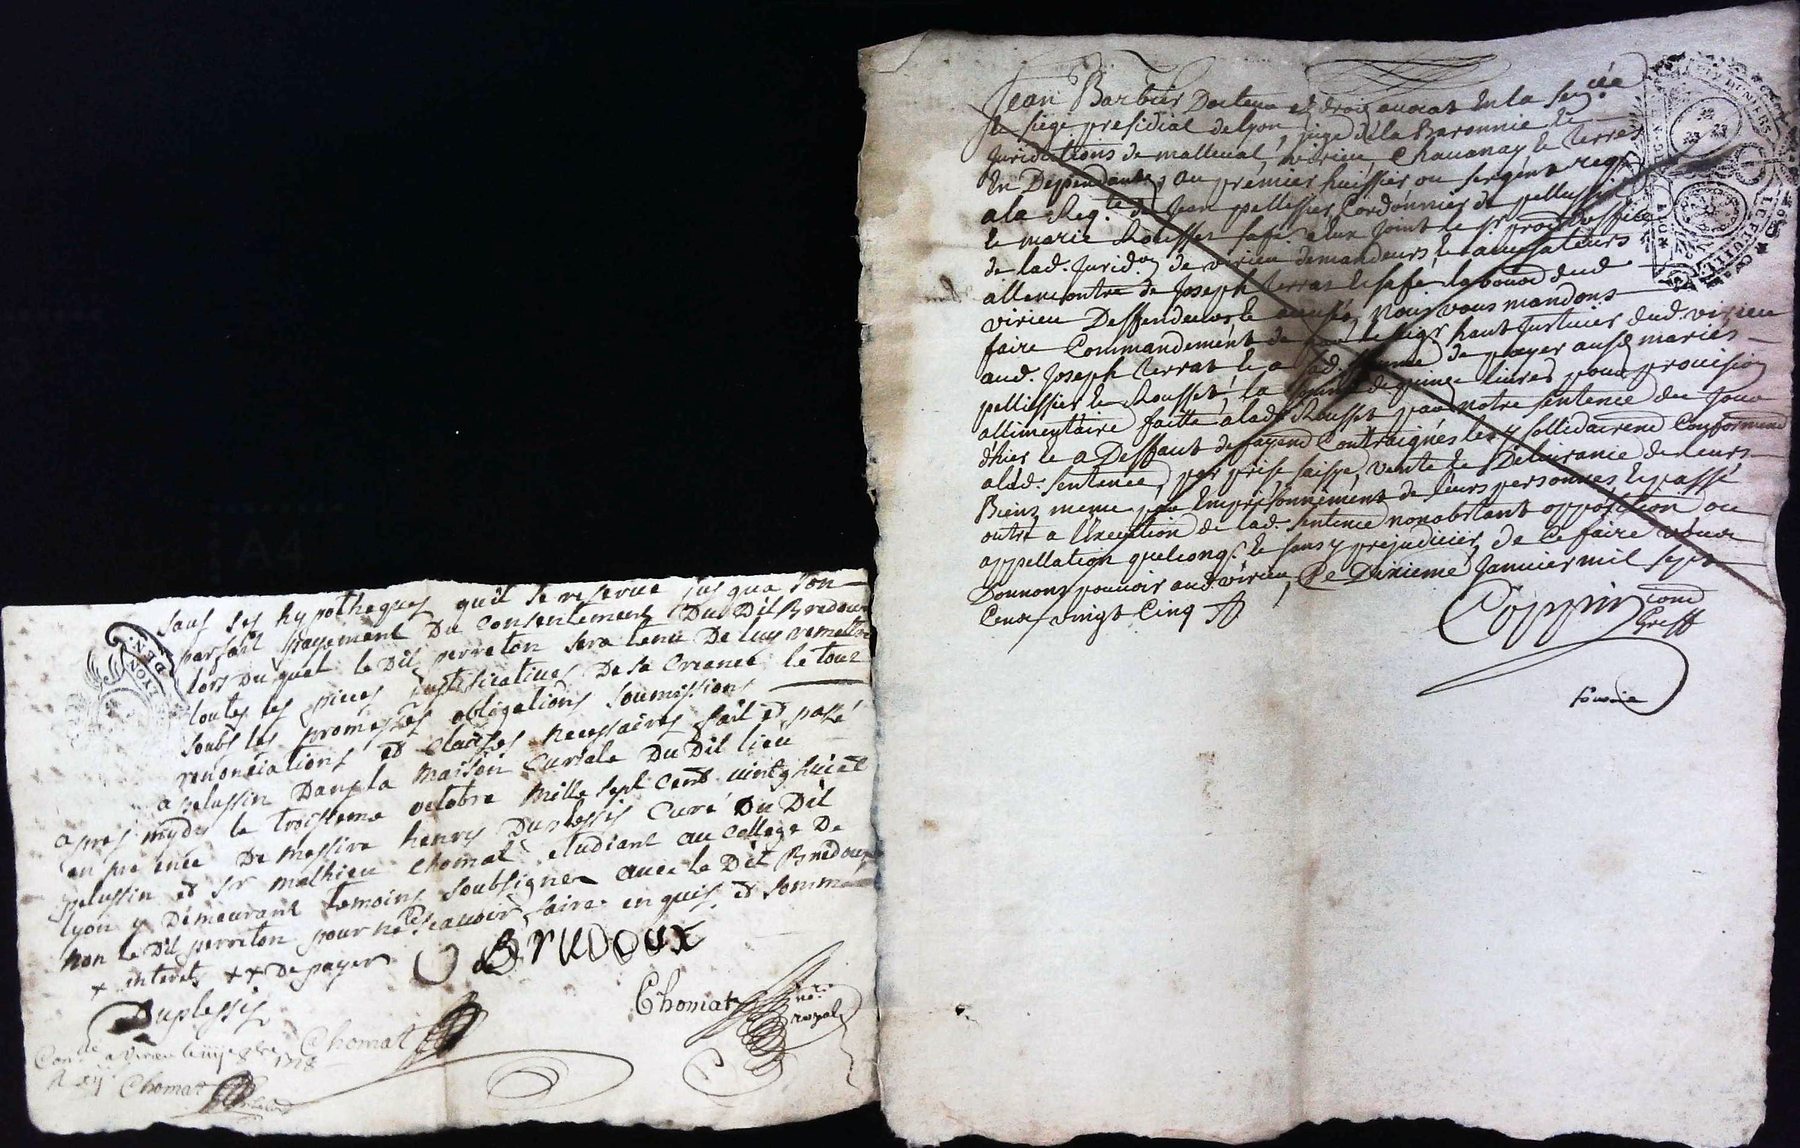 sauf ses hypotheques qu'il se reserve jusqua son
parfait payement Du Consentement Du Dit Bredoux
lors Du quel le Dit perreton sera tenu De luy remettre
toutes les pieces justificatives De sa Creance le tout
soubs les promesses obligations soumissions
renonciations et clauses necessaires fait et passé
a pelussin Dans la maison Curiale Du Dit lieu
apres mydy le troisieme octobre mille sept cent vingt huict
en presence De messire henry Duplessis Curé Du Dit
pelussin et sr mathieu Chomat etudiant au College De
lyon y Demeurant temoins soubsignes avec le Dit Bredoux
non le Dit perreton pour ne scavoir faire enquis et sommé
+ interets ++ De payer
BrUDOUX
Duplessis
Chomat
Chomat
no.re royal
Chomat
LYON
DEN.
Jean Barbier Docteur et droit avocat En la Sen.ée
et siege presidial de lyon juge de la Baronnie et
Juridictions de malleval, virieu, Chavanay et terres
En Dependantes, au premier huissier ou sergent
a la Req.te de Jean pellissier Cordonnier de pellussin
et marie Rousset sa fe a eux joint le Sr proc. d'office
de lad. Jurid.on de virieu demandeurs et accusateurs
allencontre de Joseph terrat et sa fe laboud dud.
virieu Deffendeurs et accusés, Nous vous mandons
faire Commandement de par le seigr haut Justicier dud virieu
aud. Joseph terrat et a sad. femme de payer aus.d mariés
pellissier et Rousset, la somme de quinze livres pour provision
allimentaire faitte a lad. Rousset par notre sentence du Jour
d'hier et a Deffaut de payem.t Contraignés les y sollidairem.t Conformem.t
a lad. sentence, par prise saisie, vente et Delivrance de leurs
Biens meme par Emprisonnement de leurs personnes et passé
outre a l'Execution de lad. sentence nonobstant opposition ou
appellation quelconq. et sans y prejudicier, de ce faire vous
Donnons pouvoir aud. virieu, Ce Dixieme Janvier mil sept
Cent vingt Cinq
Coppin
Greff